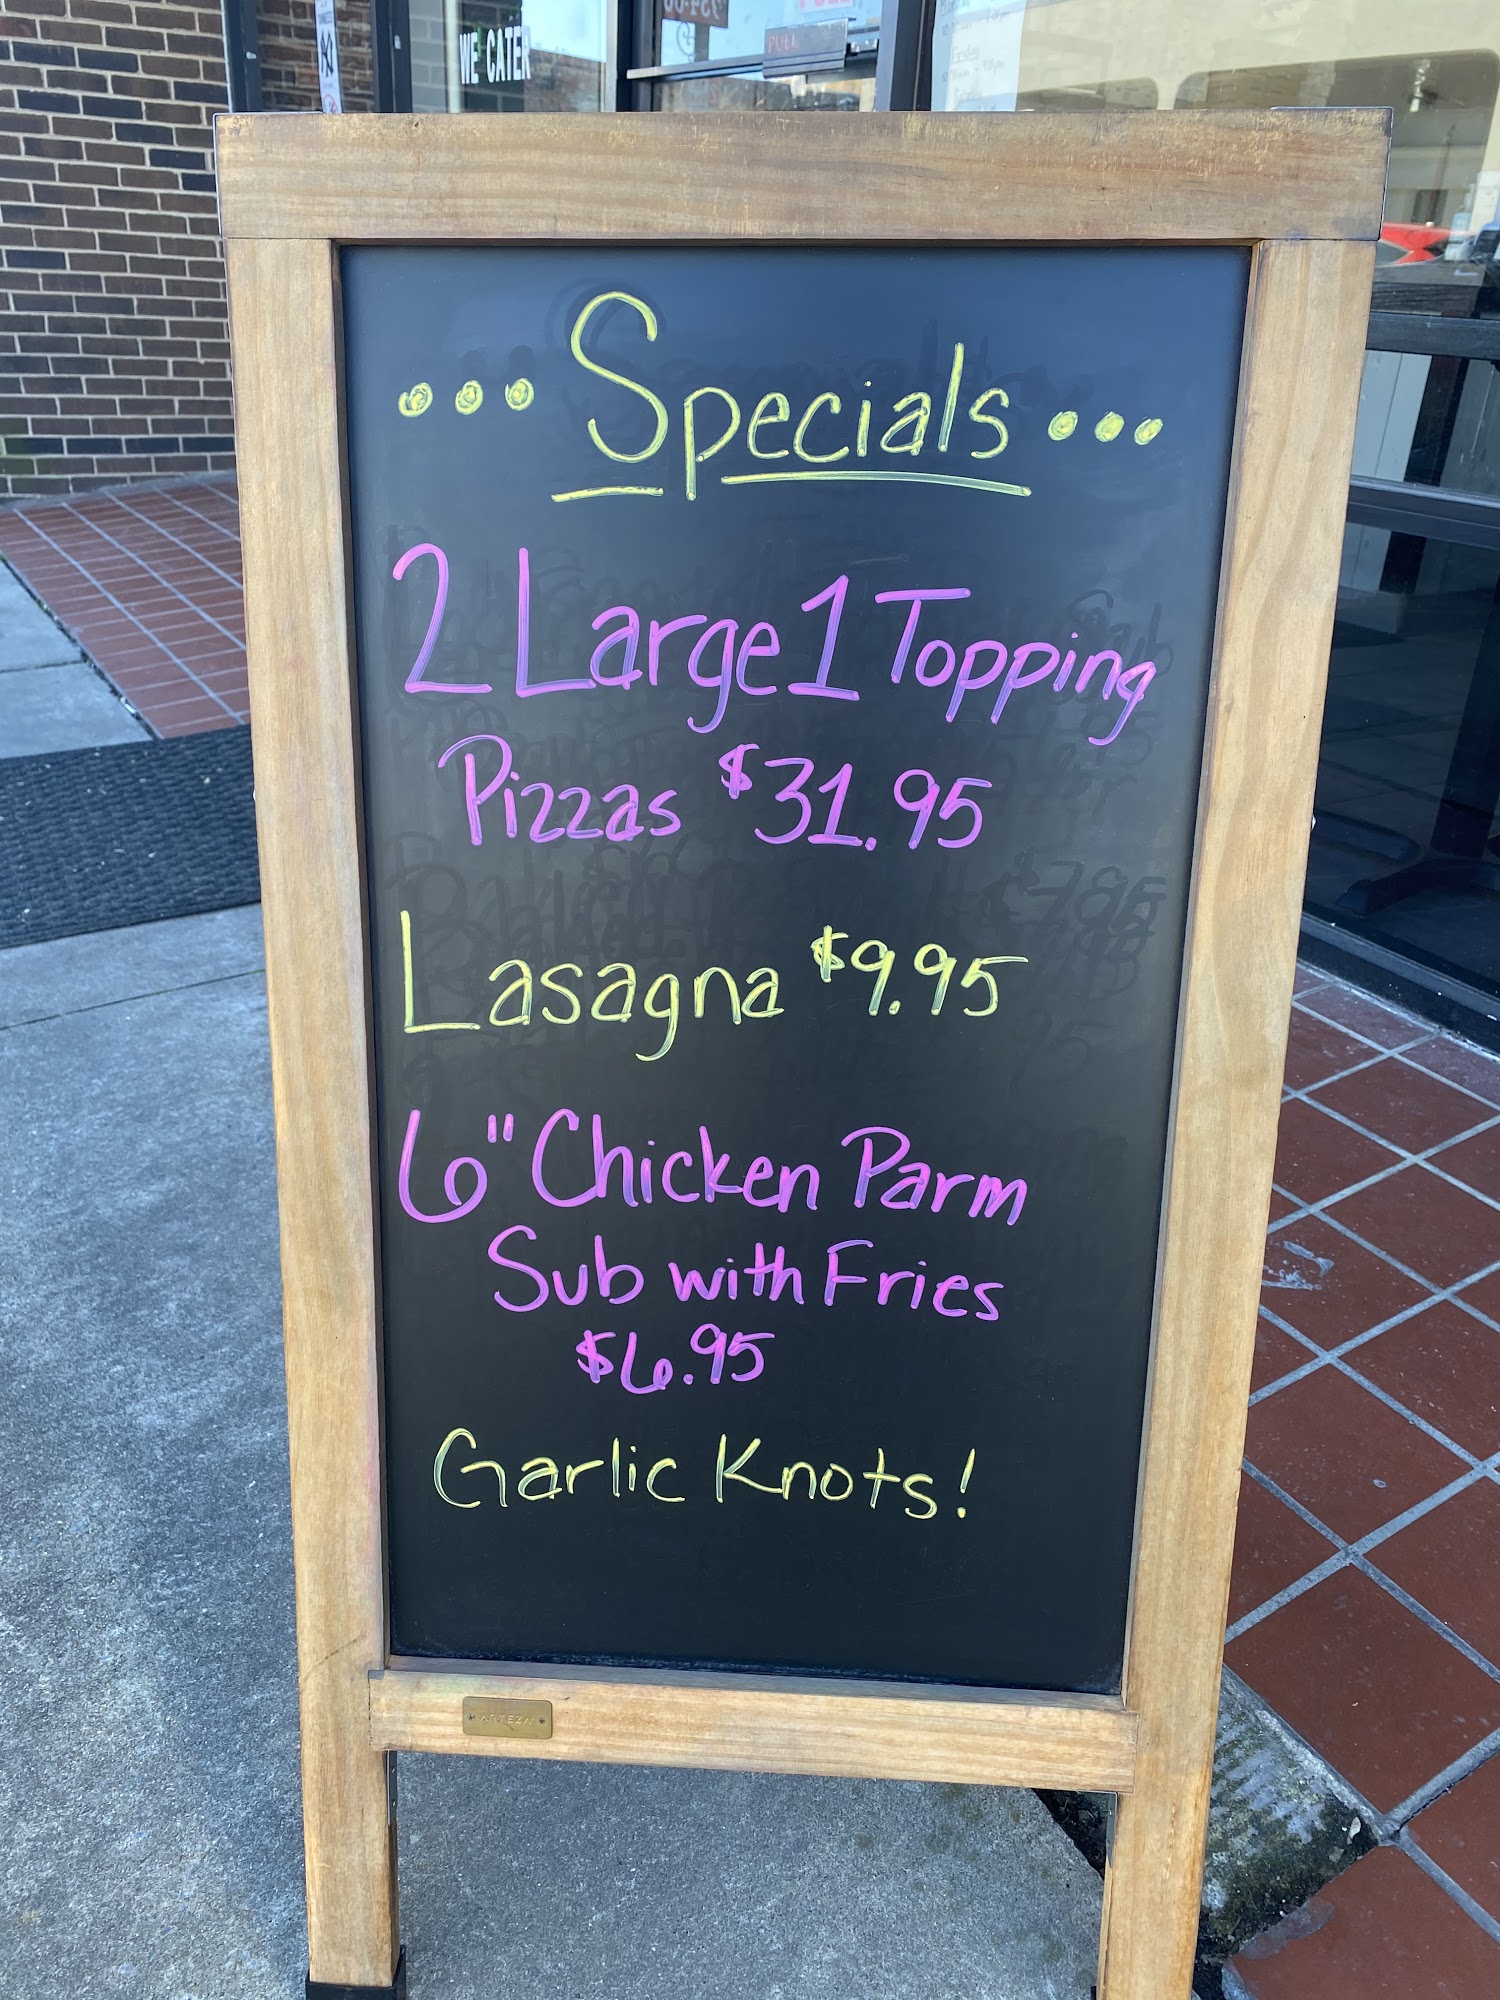 WE CATER
PULL
... Specials ...
2 Large 1 Topping
Pizzas $31.95
Lasagna $9.95
6" Chicken Parm
Sub with Fries
$6.95
Garlic Knots!
ARTEZA